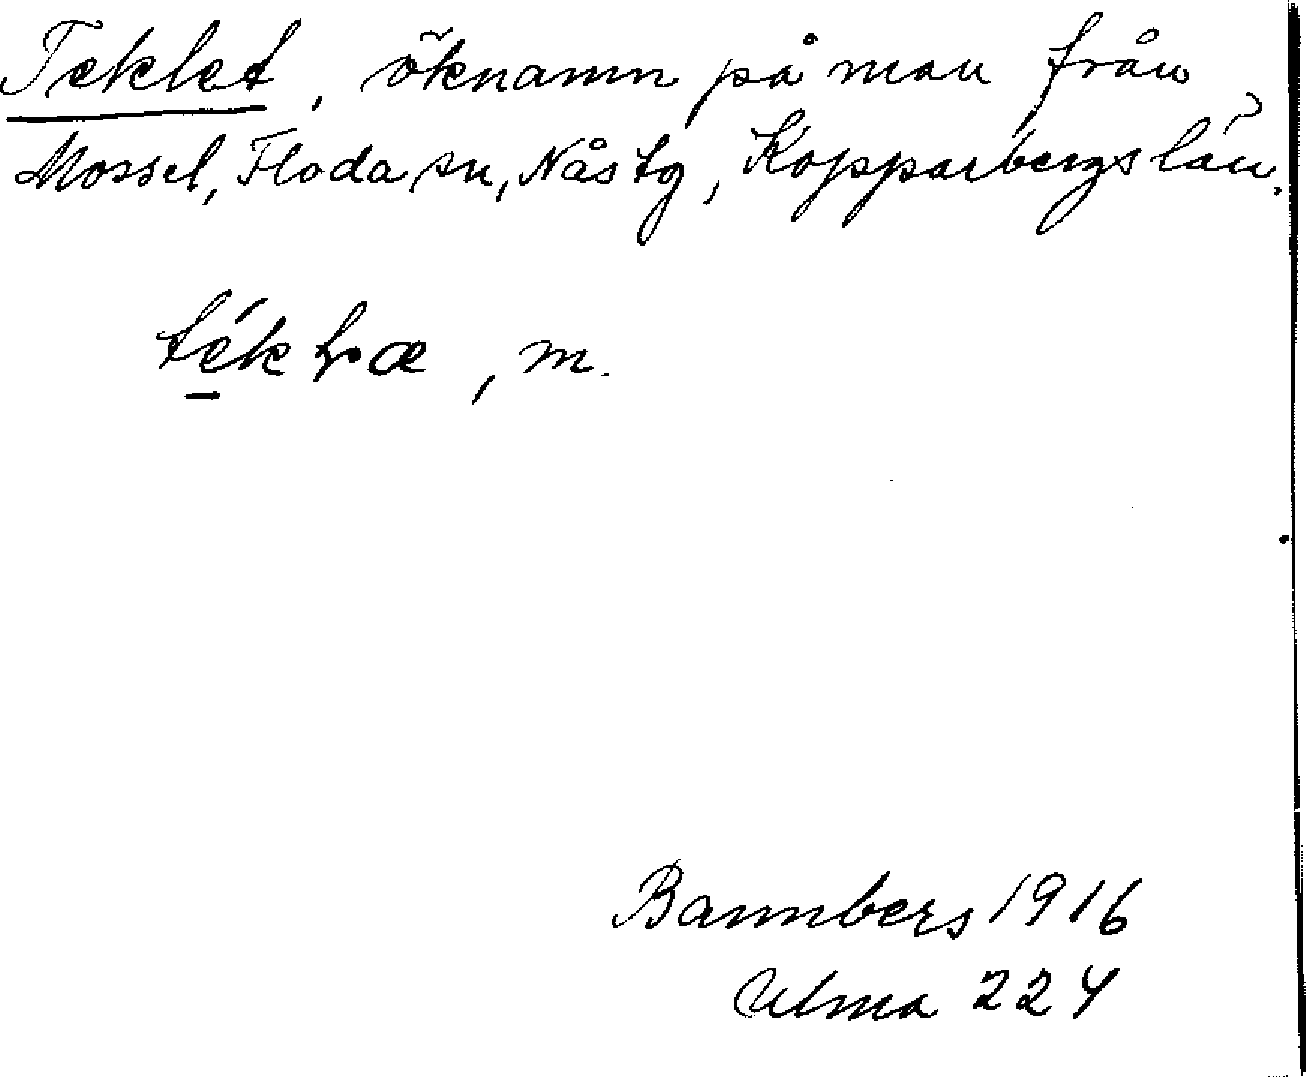 Teklet, öknamn på man från
Mossel, Floda sn, Nås tg, Kopparbergs län.
m.
Bannbers 1916
Ulma 224